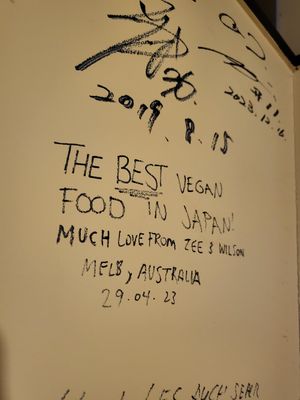 2019.8.15
2023.12.16
THE BEST VEGAN
FOOD IN JAPAN!
MUCH LOVE FROM ZEE & WILSON
MELB, AUSTRALIA
29.04.23